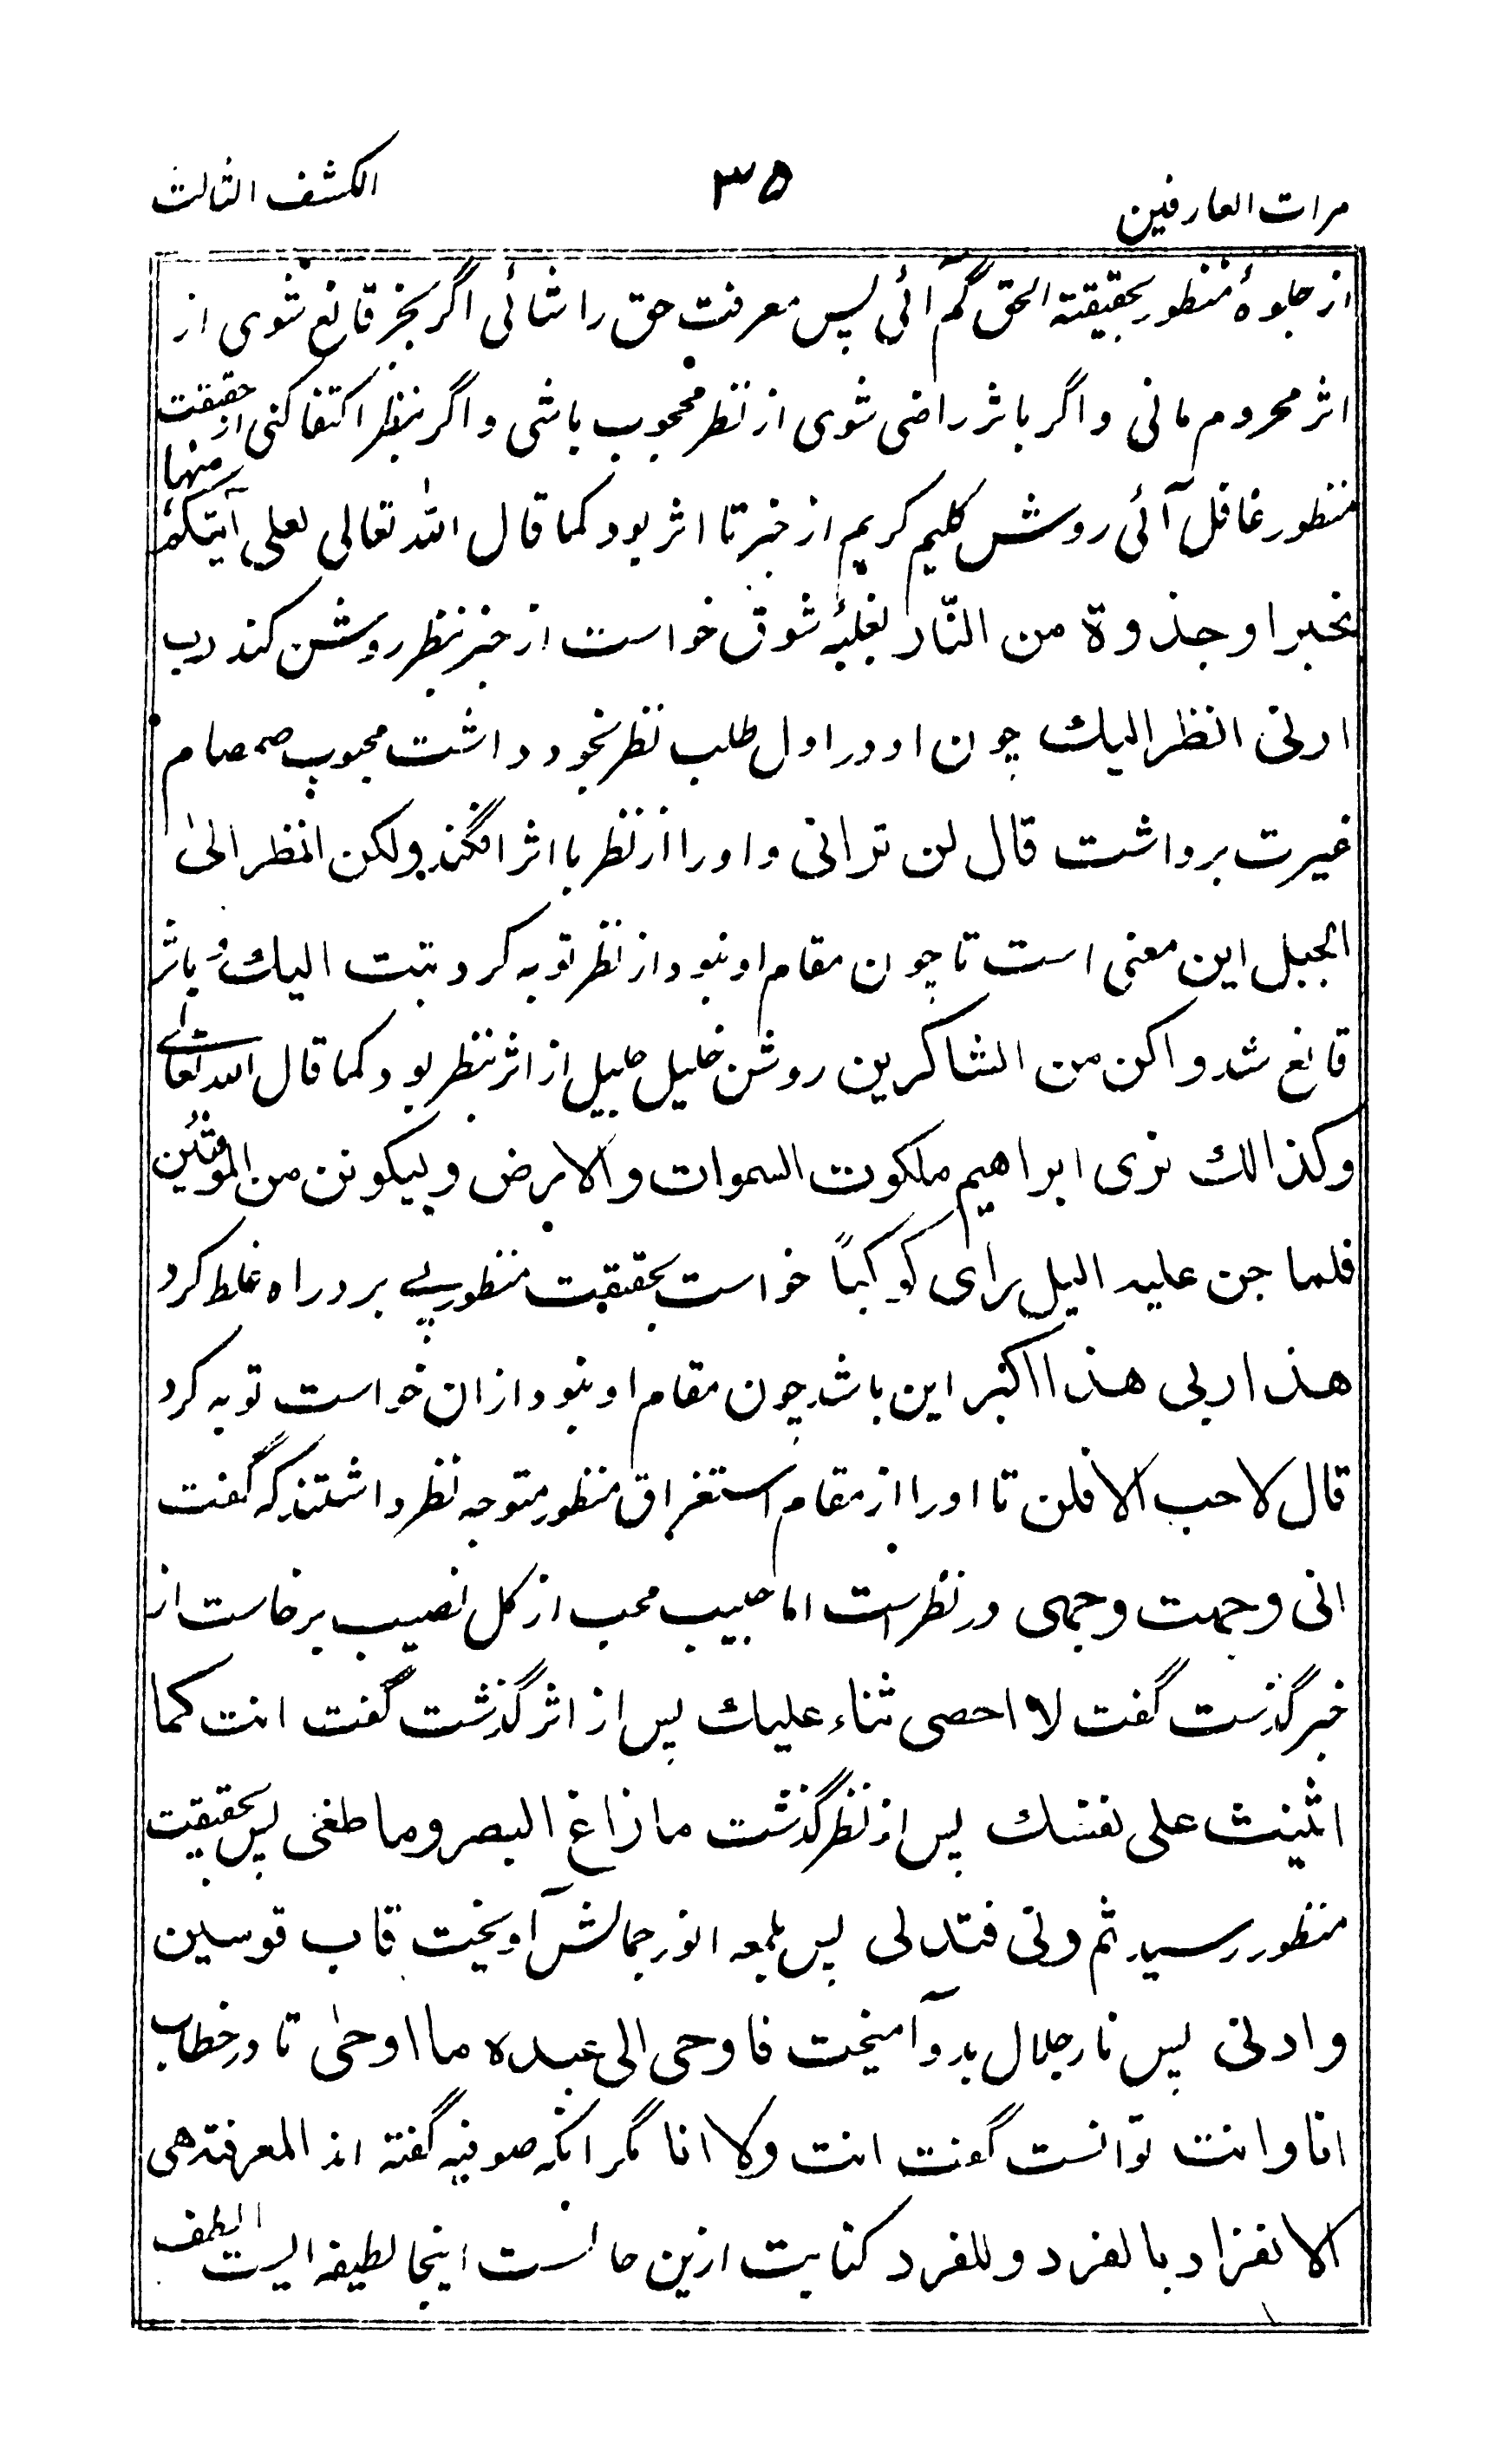 مرات العارفین ۳۵ الکشف الثالث
از جلوهٔ منظور بحقیقتہ الحق گم آئی پس معرفت حق را شائی اگر بخبر قانع شوی از
اثر محروم مانی و اگر باثر راضی شوی از نظر محجوب باشی و اگر بنظر اکتفا کنی از حقیقت
منظور غافل آئی روش کلیم کریم از خبر تا اثر بود کما قال اللہ تعالی لعلی آتیکم منہا
بخبر او جذوة من النّار بغلبۂ شوق خواست از خبر بنظر روشن کند رب
ارنی انظر الیك چون او در اول طلب نظر بخود داشت محبوب صمصام
غیرت برداشت قال لن ترانی و او را از نظر با اثر افگند ولکن انظر الیٰ
الجبل این معنی است تا چون مقام او نبود از نظر توبہ کرد تبت الیك و باثر
قانع شد و اکن من الشاکرین روشن خلیل جلیل از اثر بنظر بود کما قال اللہ تعالے
وکذالك نری ابراهیم ملکوت السموات والارض ولیکونن من الموقنین
فلما جن علیہ الیل رای کوکبًا خواست بحقیقت منظور پے برد راه غلط کرد
هذا ربی هذا اکبر این باشد چون مقام او نبود ازان خواست توبہ کرد
قال لا حب الافلن تا او را از مقام استغراق منظور متوجہ نظر داشتند کہ گفت
انی وجہت وجہی در نظرست اما حبیب محب از کل نصیب برخاست از
خبر گذشت گفت لا احصی ثناء علیك پس از اثر گذشت گفت انت کما
اثنیت علی نفسك پس از نظر گذشت ما زاغ البصر وما طغی پس بحقیقت
منظور رسید ثم دنی فتدلی پس بلمعہ انور جمالش آویخت قاب قوسین
و ادنی پس نار جلال بدو آمیخت فاوحی الی عبدہ ما اوحیٰ تا در خطاب
انا و انت توانست گفت انت ولا انا مگر آنکہ صوفیہ گفتہ اند المعرفتہ هی
الانفراد بالفرد وللفرد کنایت ازین حالست اینجا لطیفہ ایست الطف